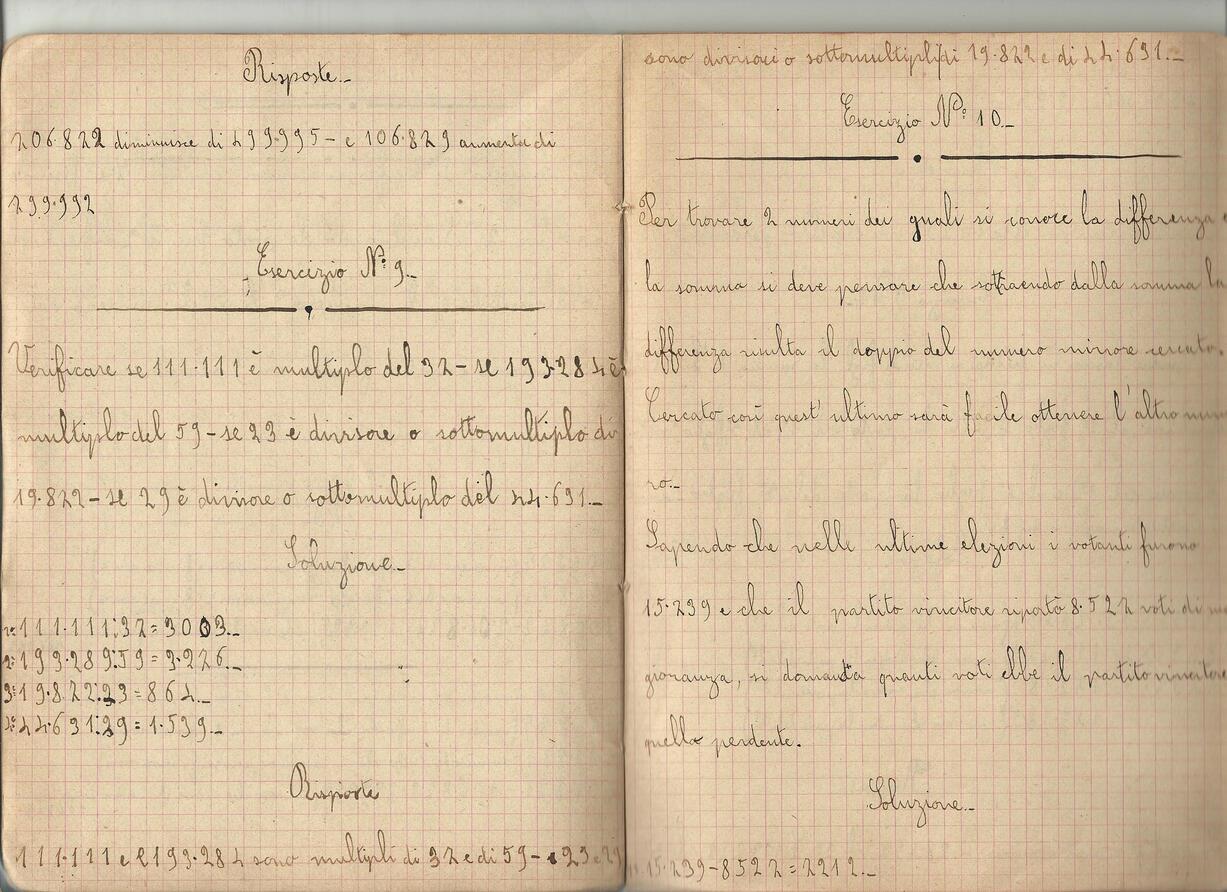 Risposte.-
206.822 diminuisce di 499.995 - e 106.829 aumenta di
299.992
Esercizio Nº 9.-
Verificare se 111.111 è multiplo del 32 - se 193.284 è
multiplo del 59 - se 23 è divisore o sottomultiplo di
19.822 - se 29 è divisore o sottomultiplo del 44.631.-
Soluzione.-
1º 111.111:32 = 3003.-
2º 193.289:59 = 3.276.-
3º 19.822:23 = 864.-
4º 44.631:29 = 1.539.-
Risposte
111.111 e 193.284 sono multipli di 32 e di 59 - e 23 e 29
sono divisori o sottomultipli di 19.822 e di 44.631.-
Esercizio Nº 10.-
Per trovare 2 numeri dei quali si conosce la differenza e
la somma si deve pensare che sottraendo dalla somma la
differenza risulta il doppio del numero minore cercato.
Cercato così quest'ultimo sarà facile ottenere l'altro nume
ro.-
Sapendo che nelle ultime elezioni i votanti furono
15.239 e che il partito vincitore riportò 8.522 voti di
gioranza, si domanda quanti voti ebbe il partito vincitore
quello perdente.
Soluzione.-
15.239 - 8522 = 2212.-